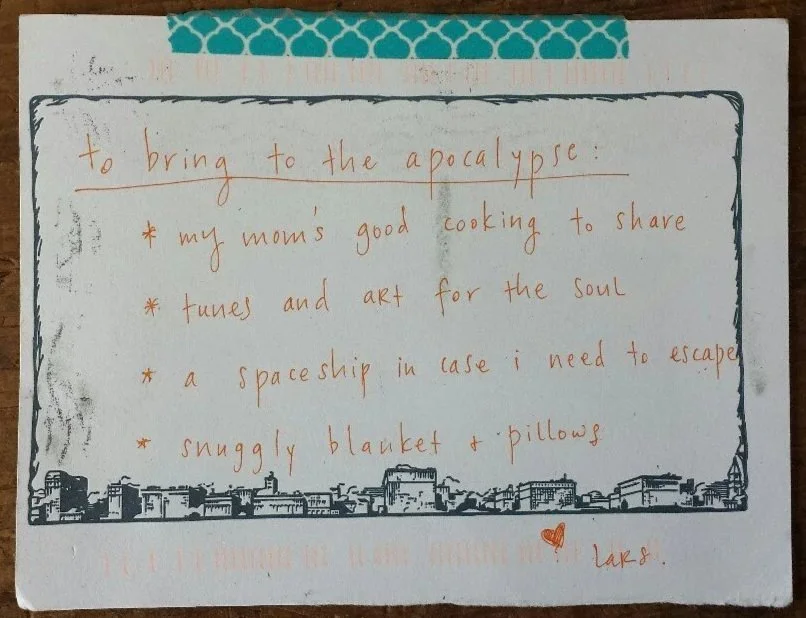 to bring to the apocalypse:
* my mom's good cooking to share
* tunes and art for the soul
* a spaceship in case i need to escape
* snuggly blanket + pillows
lars.